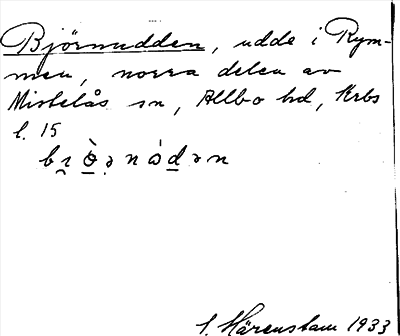 Björnudden, udde i Rym-
men, norra delen av
Mistelås sn, Allbo hd, Krbs
l. 15
S. Härenstam 1933